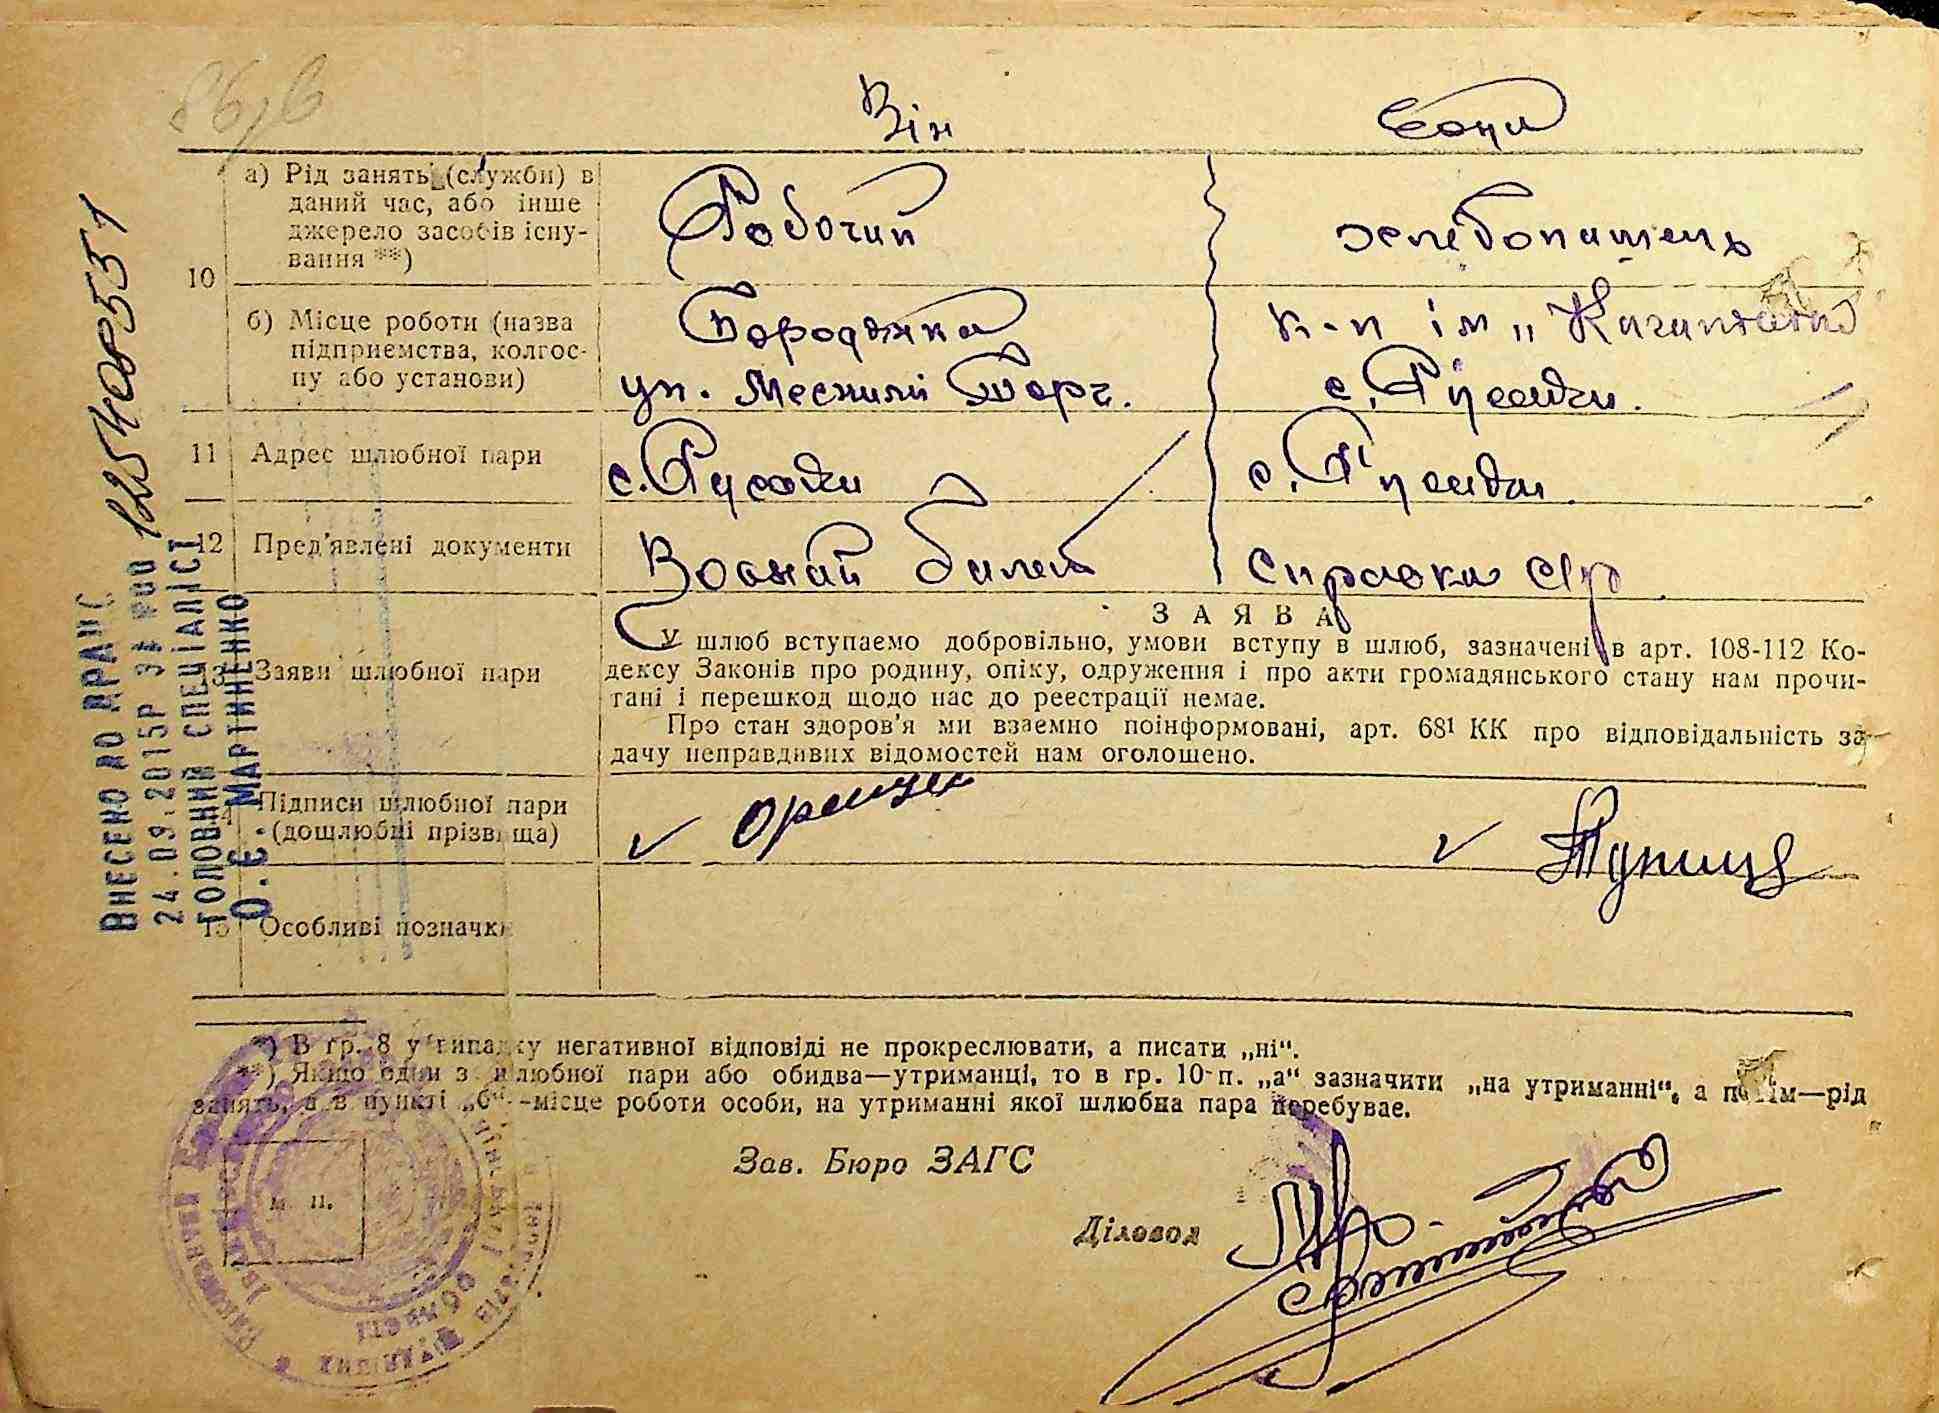 Він Вона
а) Рід занять (служби) в
даний час, або інше
джерело засобів існу-
вання **)
Робочий
хлебопашець
10
б) Місце роботи (назва
підприємства, колгос-
пу або установи)
Бородянка
уп. Меский Торг.
к-п ім „Кагановича
с. Русанів.
11 Адрес шлюбної пари
12 Пред'явлені документи
Воєний билет
Справка с/р
13 Заяви шлюбної пари
ЗАЯВА
У шлюб вступаємо добровільно, умови вступу в шлюб, зазначені в арт. 108-112 Ко-
дексу Законів про родину, опіку, одруження і про акти громадянського стану нам прочи-
тані і перешкод щодо нас до реестрації немає.
Про стан здоров'я ми взаємно поінформовані, арт. 68¹ КК про відповідальність за
дачу неправдивих відомостей нам оголошено.
14 Підписи шлюбної пари
(дошлюбні прізвища)
15 Особливі позначки
*) В гр. 8 у випадку негативної відповіді не прокреслювати, а писати „ні“.
**) Якщо один з шлюбної пари або обидва—утриманці, то в гр. 10-п. „а“ зазначити „на утриманні“, а потім—рід
занять, а в пункті „б“—місце роботи особи, на утриманні якої шлюбна пара перебуває.
м. п.
Зав. Бюро ЗАГС
Діловод
ВНЕСЕНО ДО ДРАЦС
24.09.2015Р ЗА №00 125408551
ГОЛОВНИЙ СПЕЦІАЛІСТ
О.Є. МАРТИНЕНКО